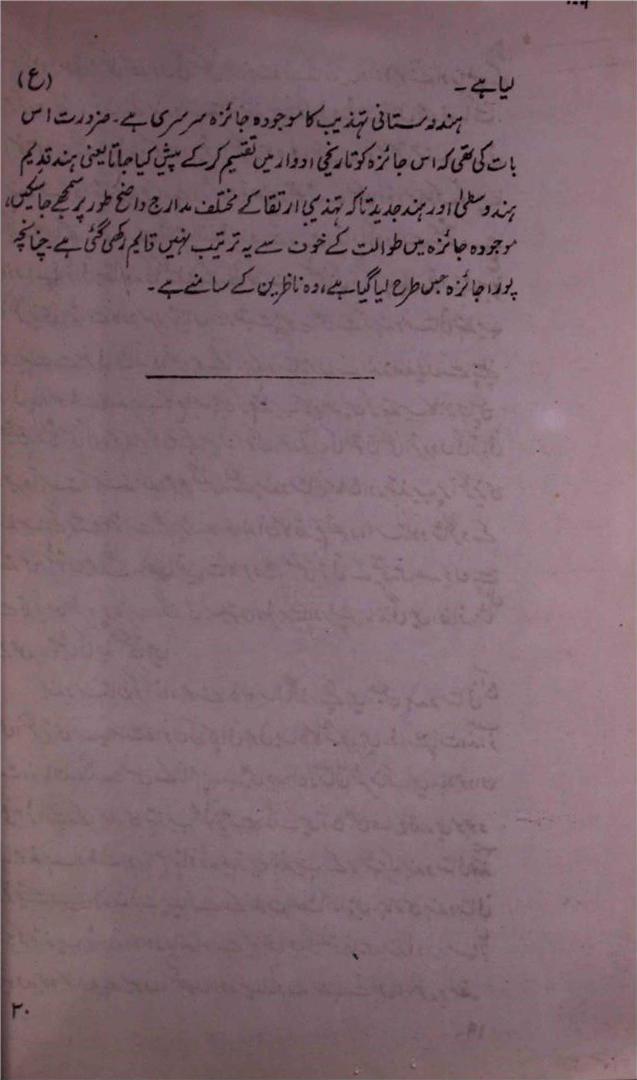 لیا ہے۔ (ع)
ہندوستانی تہذیب کا موجودہ جائزہ سرسری ہے۔ ضرورت اس
بات کی تھی کہ اس جائزہ کو تاریخی ادوار میں تقسیم کرکے پیش کیا جاتا یعنی ہند قدیم
ہند وسطیٰ اور ہند جدید تاکہ تہذیبی ارتقا کے مختلف مدارج واضح طور پر سمجھے جاسکیں،
موجودہ جائزہ میں طوالت کے خوف سے یہ ترتیب نہیں قایم رکھی گئی ہے۔ چنانچہ
پورا جائزہ جس طرح لیا گیا ہے، وہ ناظرین کے سامنے ہے۔
۲۰